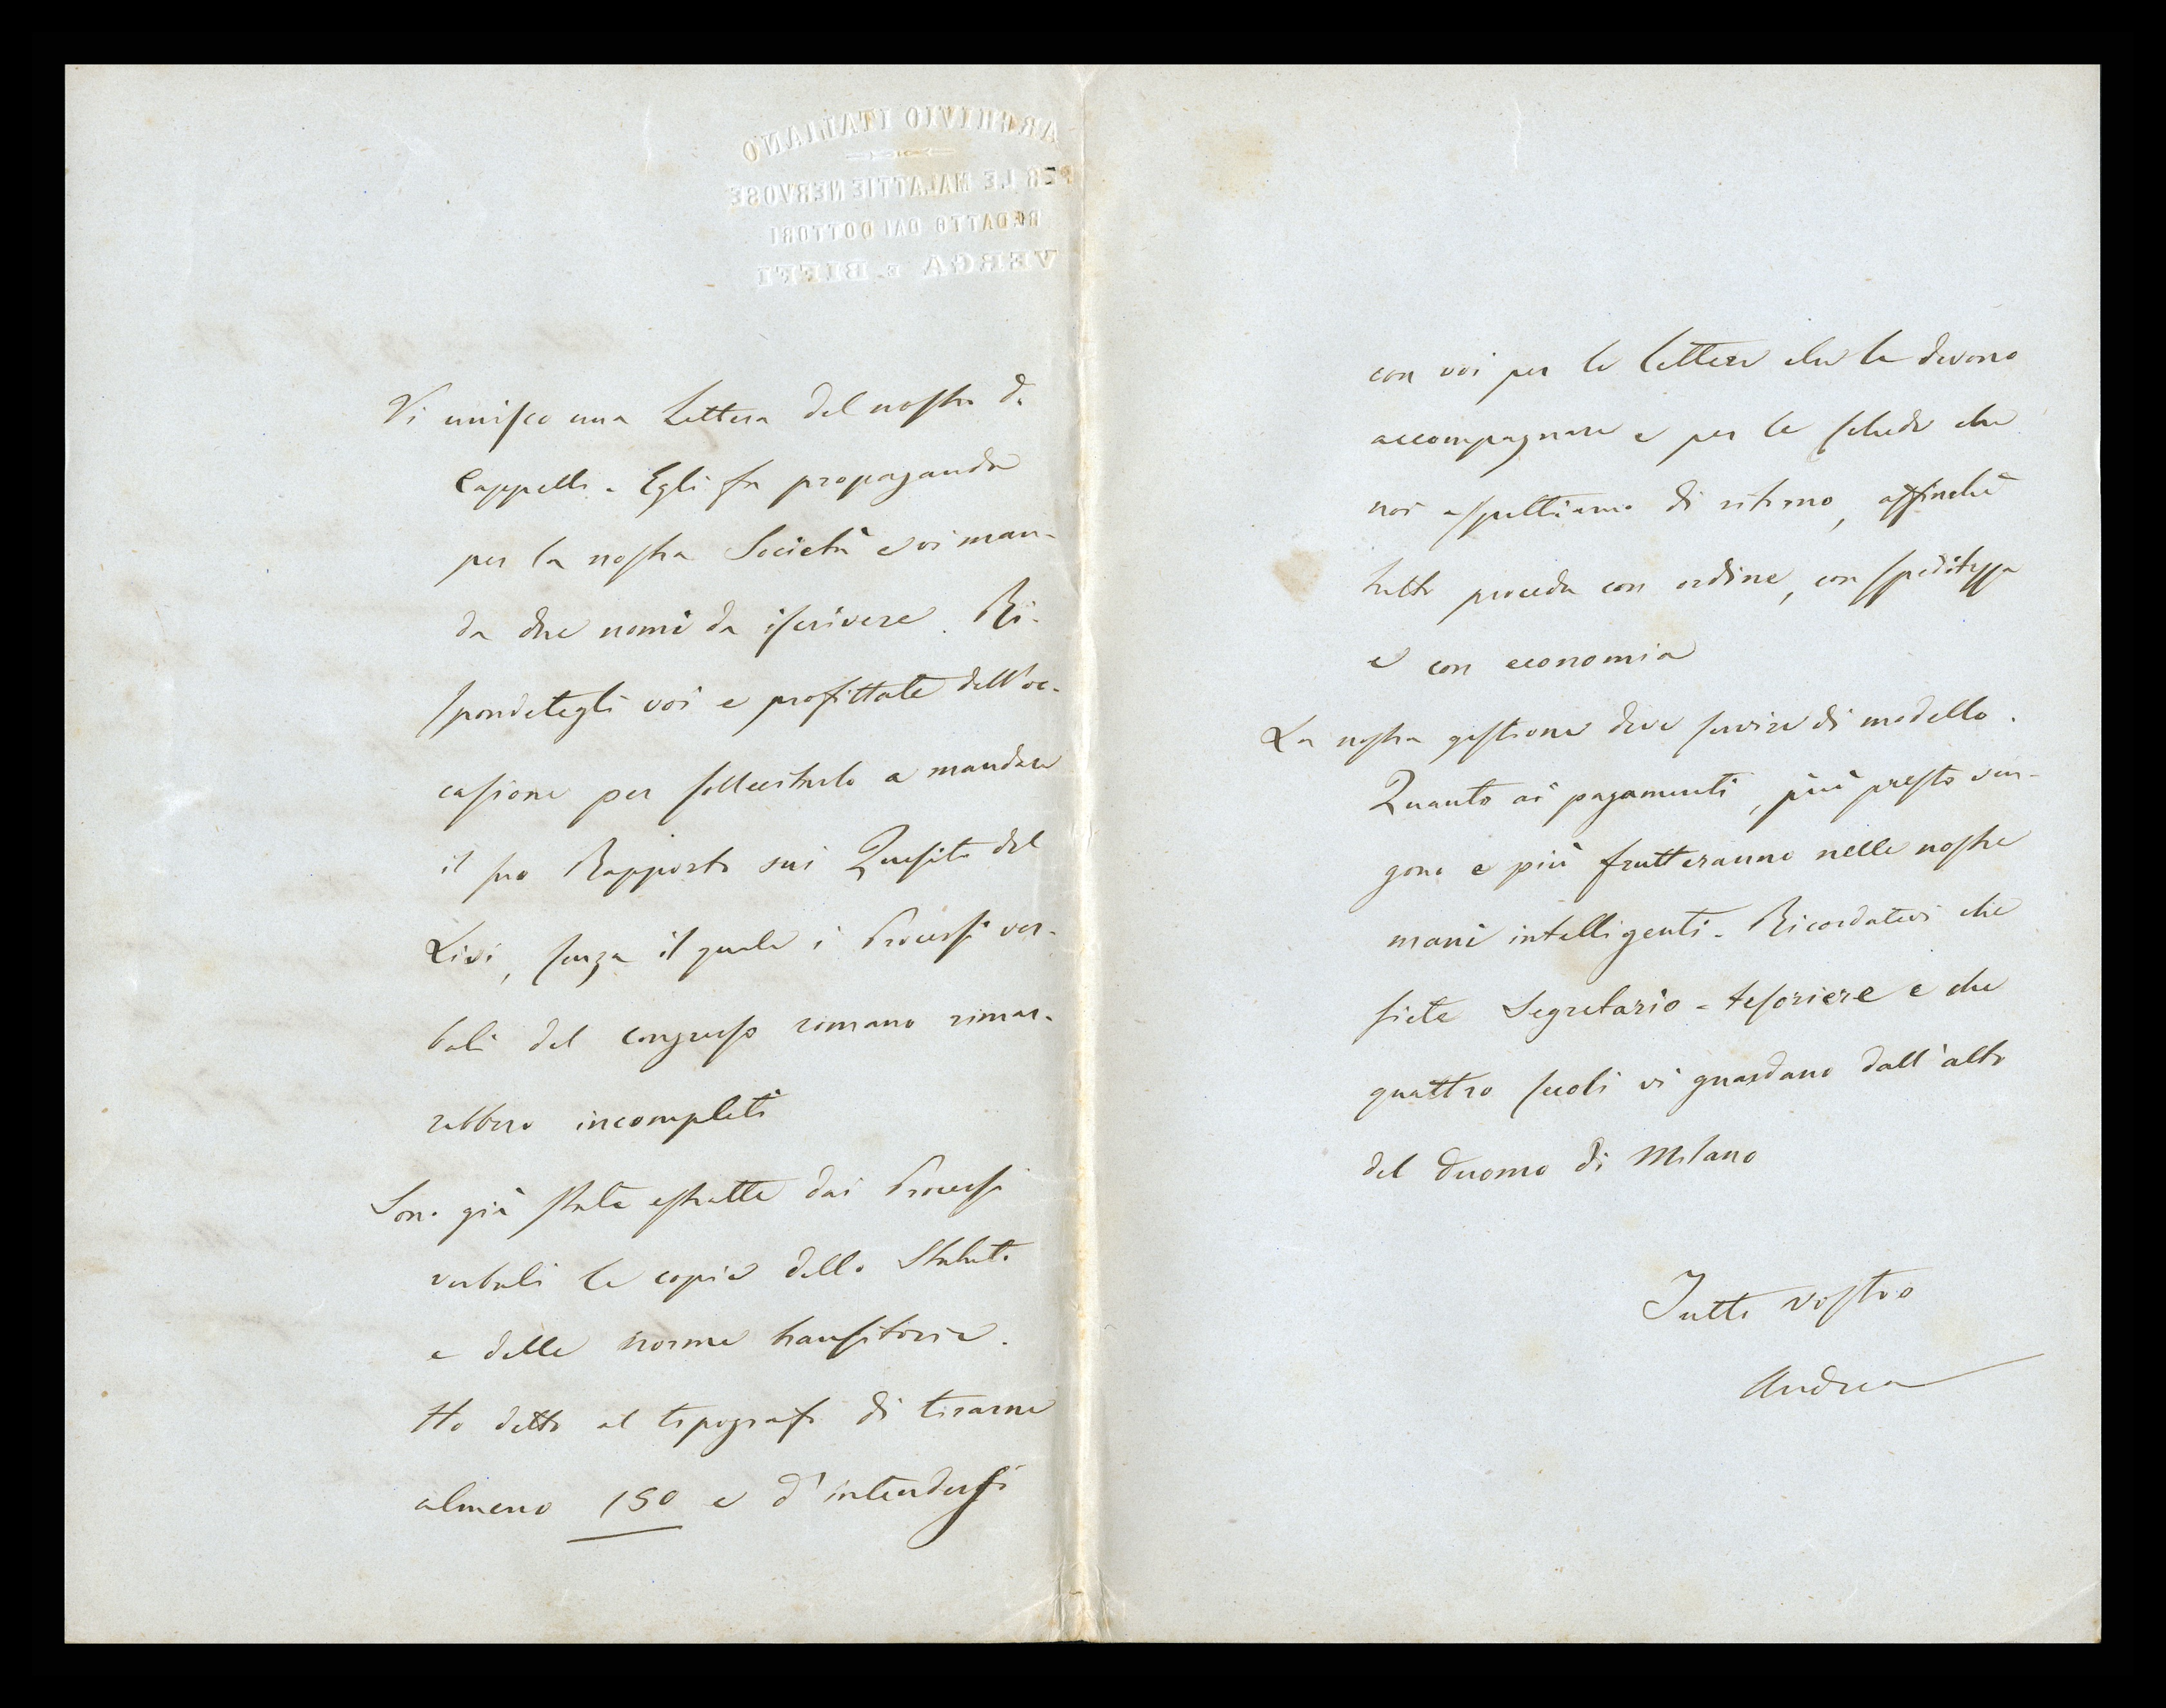 ARCHIVIO ITALIANO
PER LE MALATTIE NERVOSE
REDATTO DAI DOTTORI
VERGA E BIFFI
Vi unisco una Lettera del nostro Dr
Cappelli - Egli fa propaganda
per la nostra Società e vi man-
da due nomi da iscrivere. Ri-
spondetegli voi e profittate dell'oc-
casione per sollecitarlo a mandare
il suo Rapporto sui Quesiti del
Livi, senza il quale i Processi ver-
bali del congresso romano rimar-
rebbero incompleti
Sono già state estratte dai Processi
verbali le copie dello Statuto
e delle norme transitorie.
Ho detto al tipografo di tirarne
almeno 150 e d'intendersi
con voi per le lettere che le devono
accompagnare e per le schede che
noi aspettiamo di ritorno, affinchè
tutto proceda con ordine, con speditezza
e con economia
La nostra gestione deve servire di modello.
Quanto ai pagamenti, più presto ven-
gono e più frutteranno nelle nostre
mani intelligenti - Ricordatevi che
siete Segretario - tesoriere e che
quattro secoli vi guardano dall'alto
del duomo di Milano
Tutto vostro
Andrea